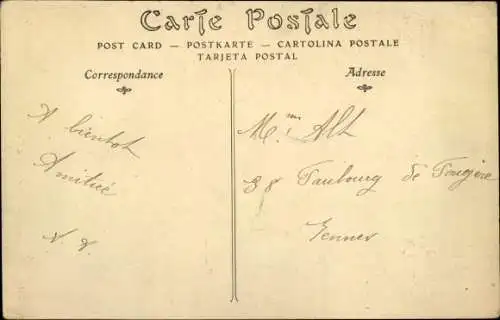 Carte Postale
POST CARD — POSTKARTE — CARTOLINA POSTALE
TARJETA POSTAL
Correspondance
Adresse
A bientot
Amitiée
Mme Alt
38 Faubourg de Fougère